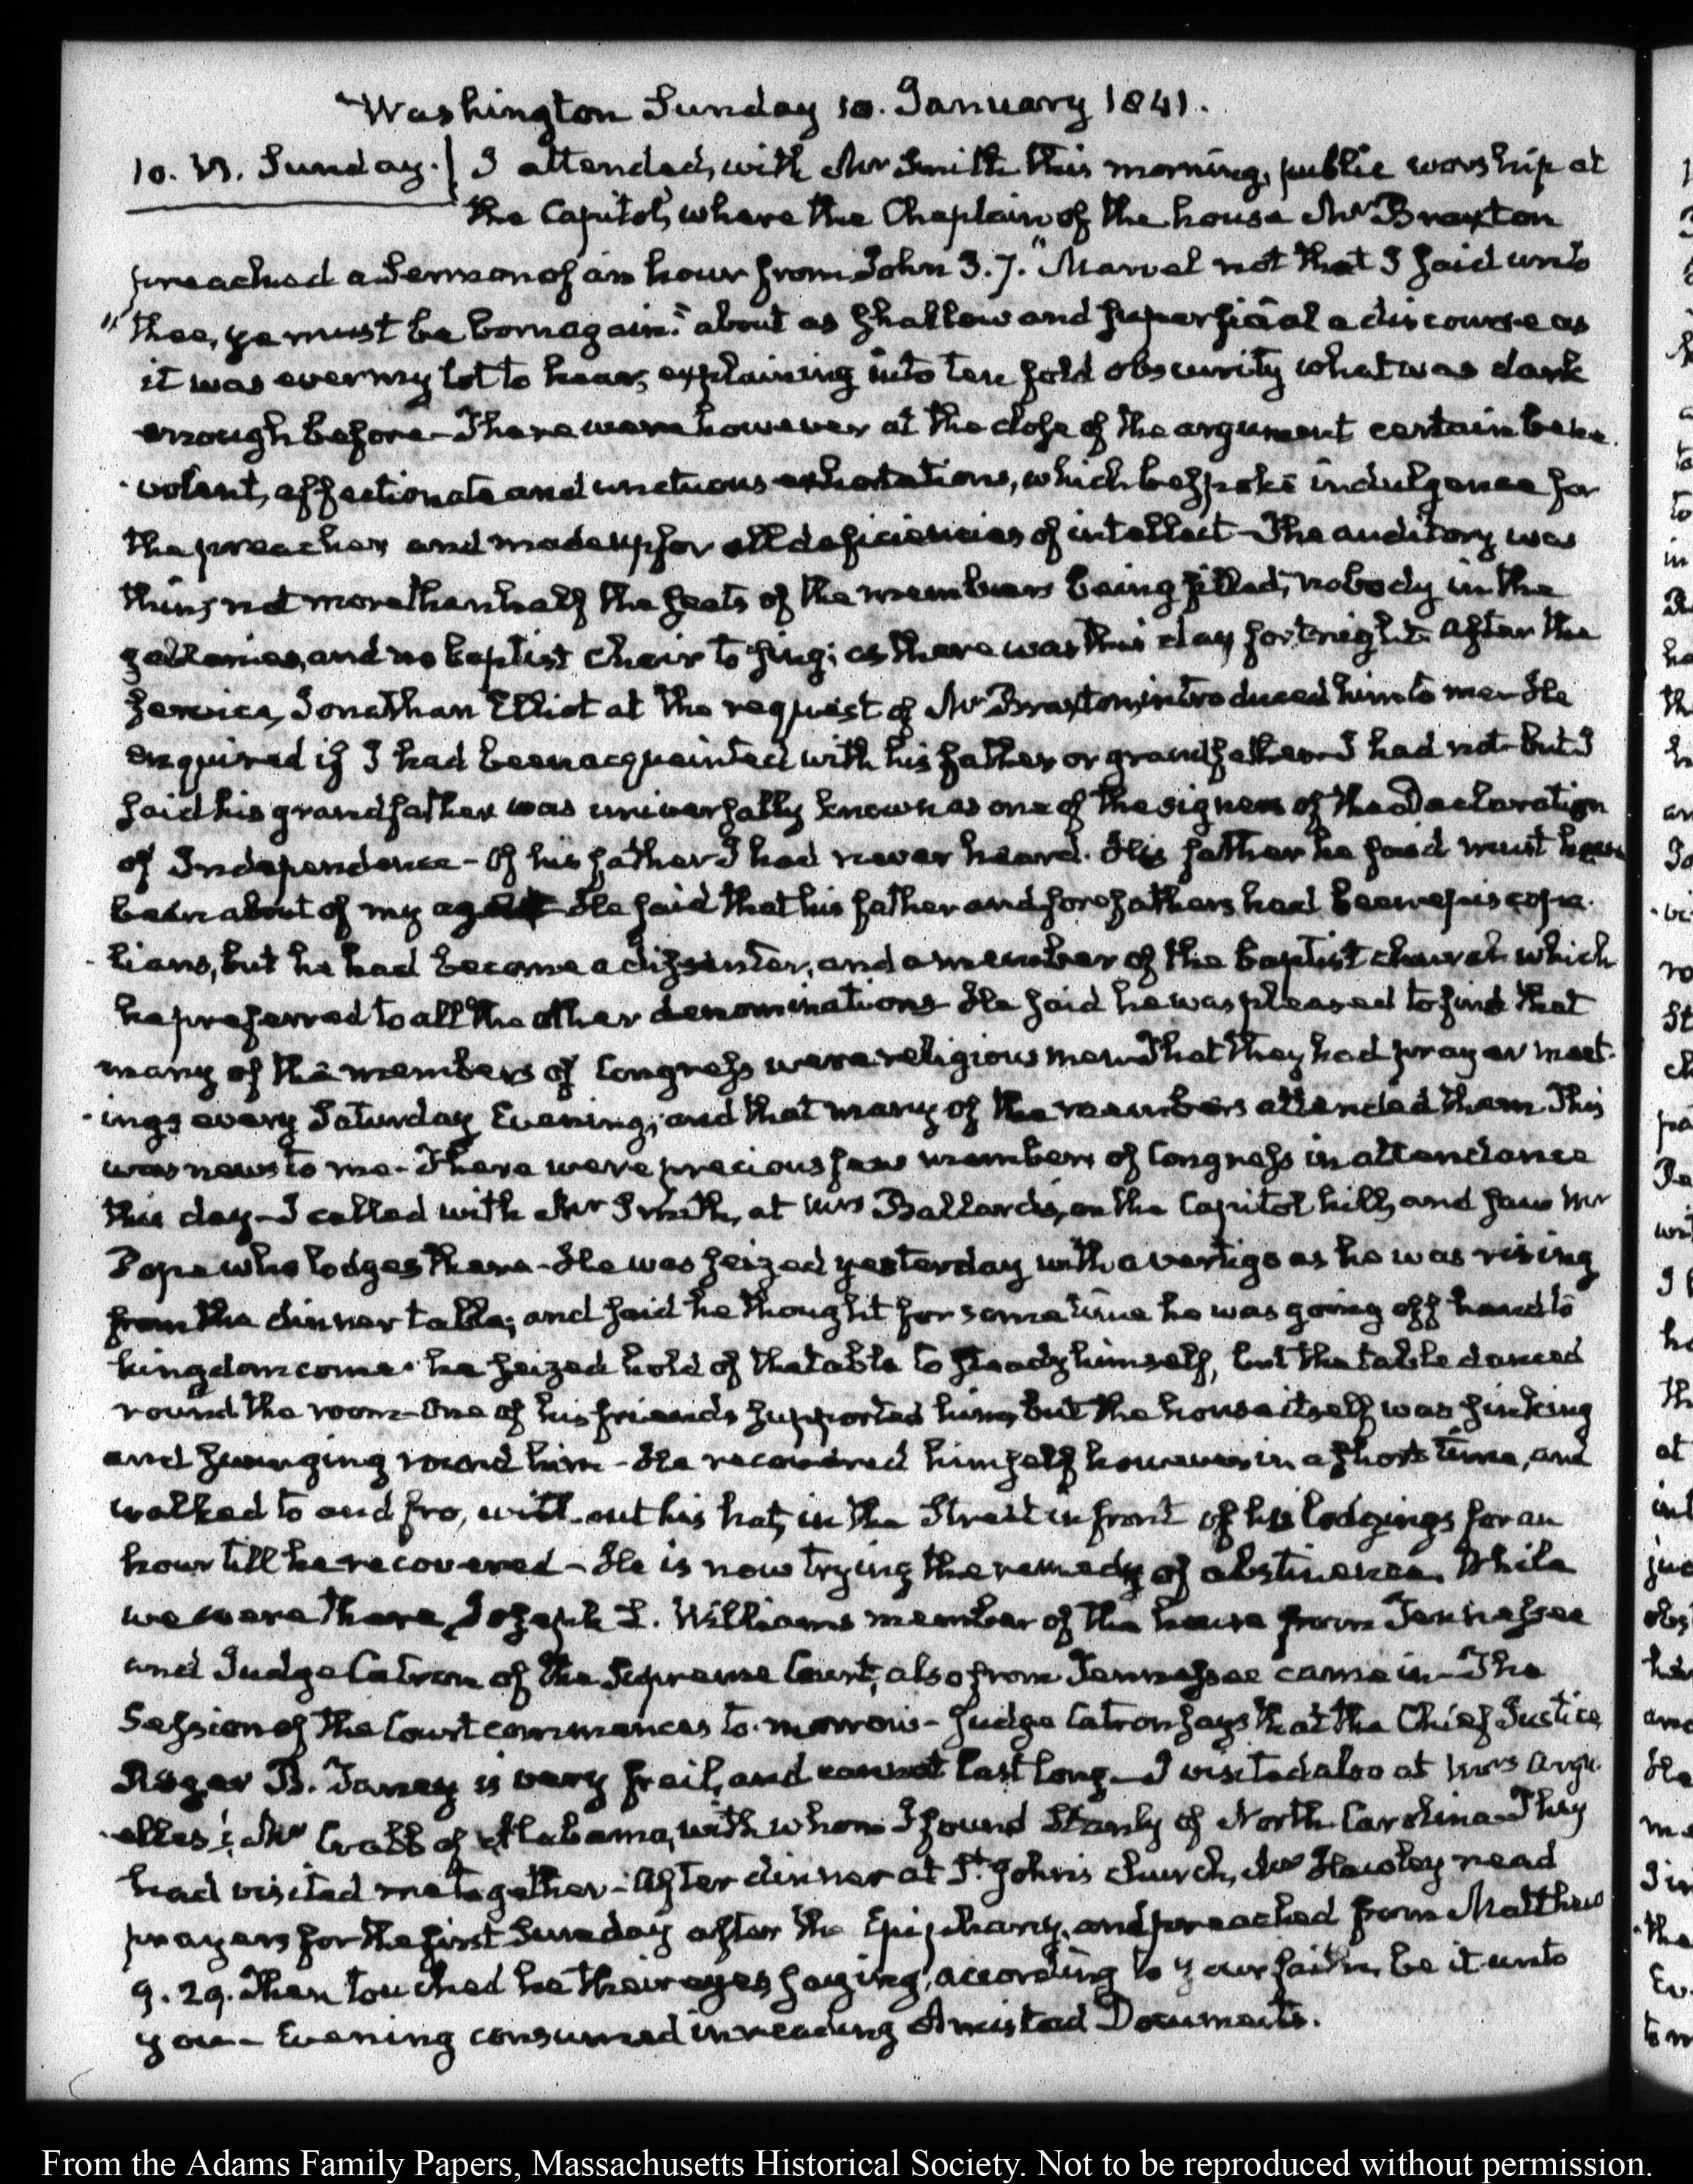 Washington Sunday 10. January 1841.
10. VI. Sunday. I attended, with Mr Smith this morning, public worship at
the Capitol, where the Chaplain of the house Mr Braxton
preached a Sermon of an hour from John 3.7. "Marvel not that I said unto
"thee, ye must be born again." about as shallow and superficial a discourse as
it was ever my lot to hear, explaining into ten fold obscurity what was dark
enough before – There were however at the close of the argument certain bene-
-volent, affectionate and unctuous exhortations, which bespoke indulgence for
the preacher, and made up for all deficiencies of intellect – The auditory was
thin; not more than half the seats of the members being filled, nobody in the
galleries, and no baptist choir to sing; as there was this day fortnight. After the
service, Jonathan Elliot at the request of Mr Braxton, introduced him to me – He
enquired if I had been acquainted with his father or grandfather – I had not – but I
said his grandfather was universally known as one of the signers of the Declaration
of Independence – Of his father I had never heard. His father he said must have
been about of my age – He said that his father and forefathers had been episcopa-
-lians, but he had become a dissenter, and a member of the baptist church which
he preferred to all the other denominations – He said he was pleased to find that
many of the members of Congress were religious men – That they had prayer meet-
-ings every Saturday Evening; and that many of the members attended them. This
was news to me – There were precious few members of Congress in attendance
this day – I called with Mr Smith, at Mrs Ballard's, on the Capitol hill, and saw Mr
Pope who lodges there – He was seized yesterday with a vertigo as he was rising
from the dinner table; and said he thought for some time he was going off hand to
kingdom come. he seized hold of the table to steady himself, but the table danced
round the room – One of his friends supported him, but the house itself was sinking
and swinging round him – He recovered himself however in a short time, and
walked to and fro, without his hat, in the Street in front of his lodgings for an
hour till he recovered – He is now trying the remedy of abstinence. While
we were there, Joseph L. Williams member of the house from Tennessee
and Judge Catron of the Supreme Court, also from Tennessee came in – The
Session of the Court commences to-morrow – Judge Catron says that the Chief Justice
Roger B. Taney is very frail, and cannot last long – I visited also at Mrs Argu-
-elles's, Mr Crabb of Alabama, with whom I found Stanly of North Carolina – They
had visited me together – After dinner at St. John's church, Mr Hawley read
prayers for the first Sunday after the Epiphany, and preached from Matthew
9.29. Then touched he their eyes saying, according to your faith, be it unto
you – Evening consumed in reading Amistad Documents.
From the Adams Family Papers, Massachusetts Historical Society. Not to be reproduced without permission.